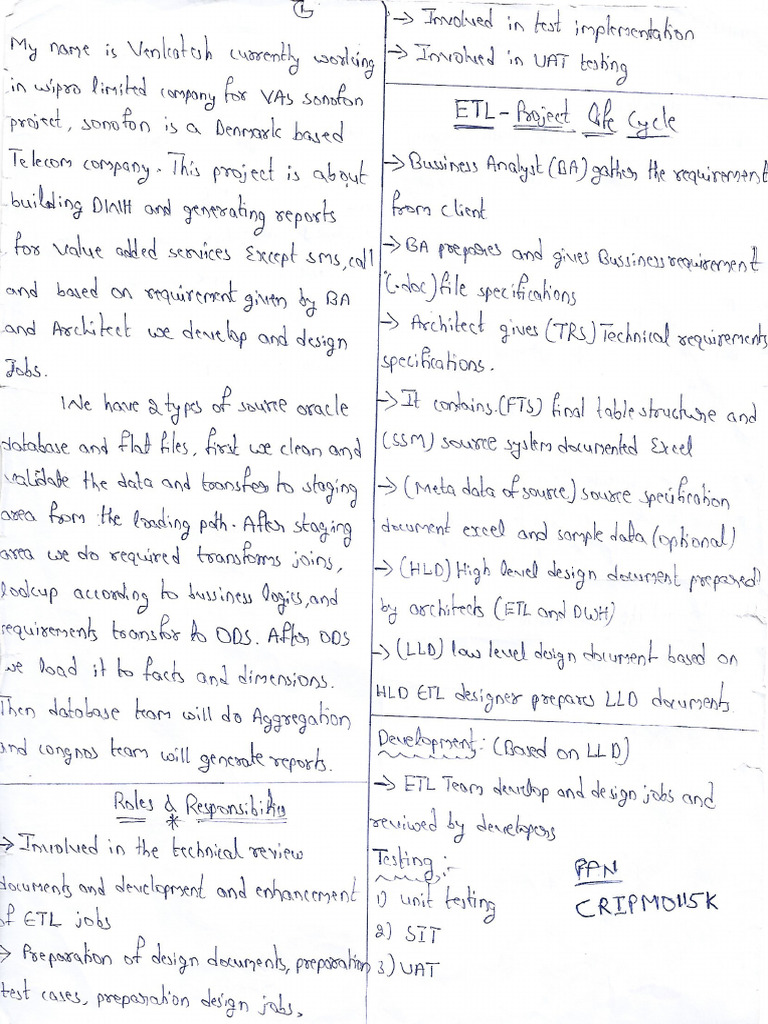 1
My name is Venkatesh currently working
in wipro limited company for VAs sonofon
project, sonofon is a Denmark based
Telecom company. This project is about
building DWH and generating reports
for value added services Except sms, call
and based on requirement given by BA
and Architect we develop and design
Jobs.
We have 2 types of source oracle
database and flat files, first we clean and
validate the data and transfer to staging
area from the loading path. After staging
area we do required transforms joins,
lookup according to bussiness logics, and
requirements transfor to ODS. After ODS
we load it to facts and dimensions.
Then database team will do Aggregation
and congnos team will generate reports.
Roles & Responsibilities
*
→ Involved in the technical review
documents and development and enhancement
of ETL jobs
→ Preparation of design documents, preparation
test cases, preparation design jobs,
→ Involved in test implementation
→ Involved in UAT testing
ETL - Project Life Cycle
→ Bussiness Analyst (BA) gather the requirement
from client
→ BA prepares and gives Bussiness requirement
(.doc) file specifications
→ Architect gives (TRS) Technical requirements
specifications.
→ It contains (FTS) final table structure and
(SSM) source system documented Excel
→ (Meta data of source) source specification
document excel and sample data (optional)
→ (HLD) High level design document prepared
by architects (ETL and DWH)
→ (LLD) low level design document based on
HLD ETL designer prepares LLD documents
Development: (Based on LLD)
→ ETL Team develop and design jobs and
reviwed by developers
Testing:-
1) unit testing
2) SIT
3) UAT
PAN